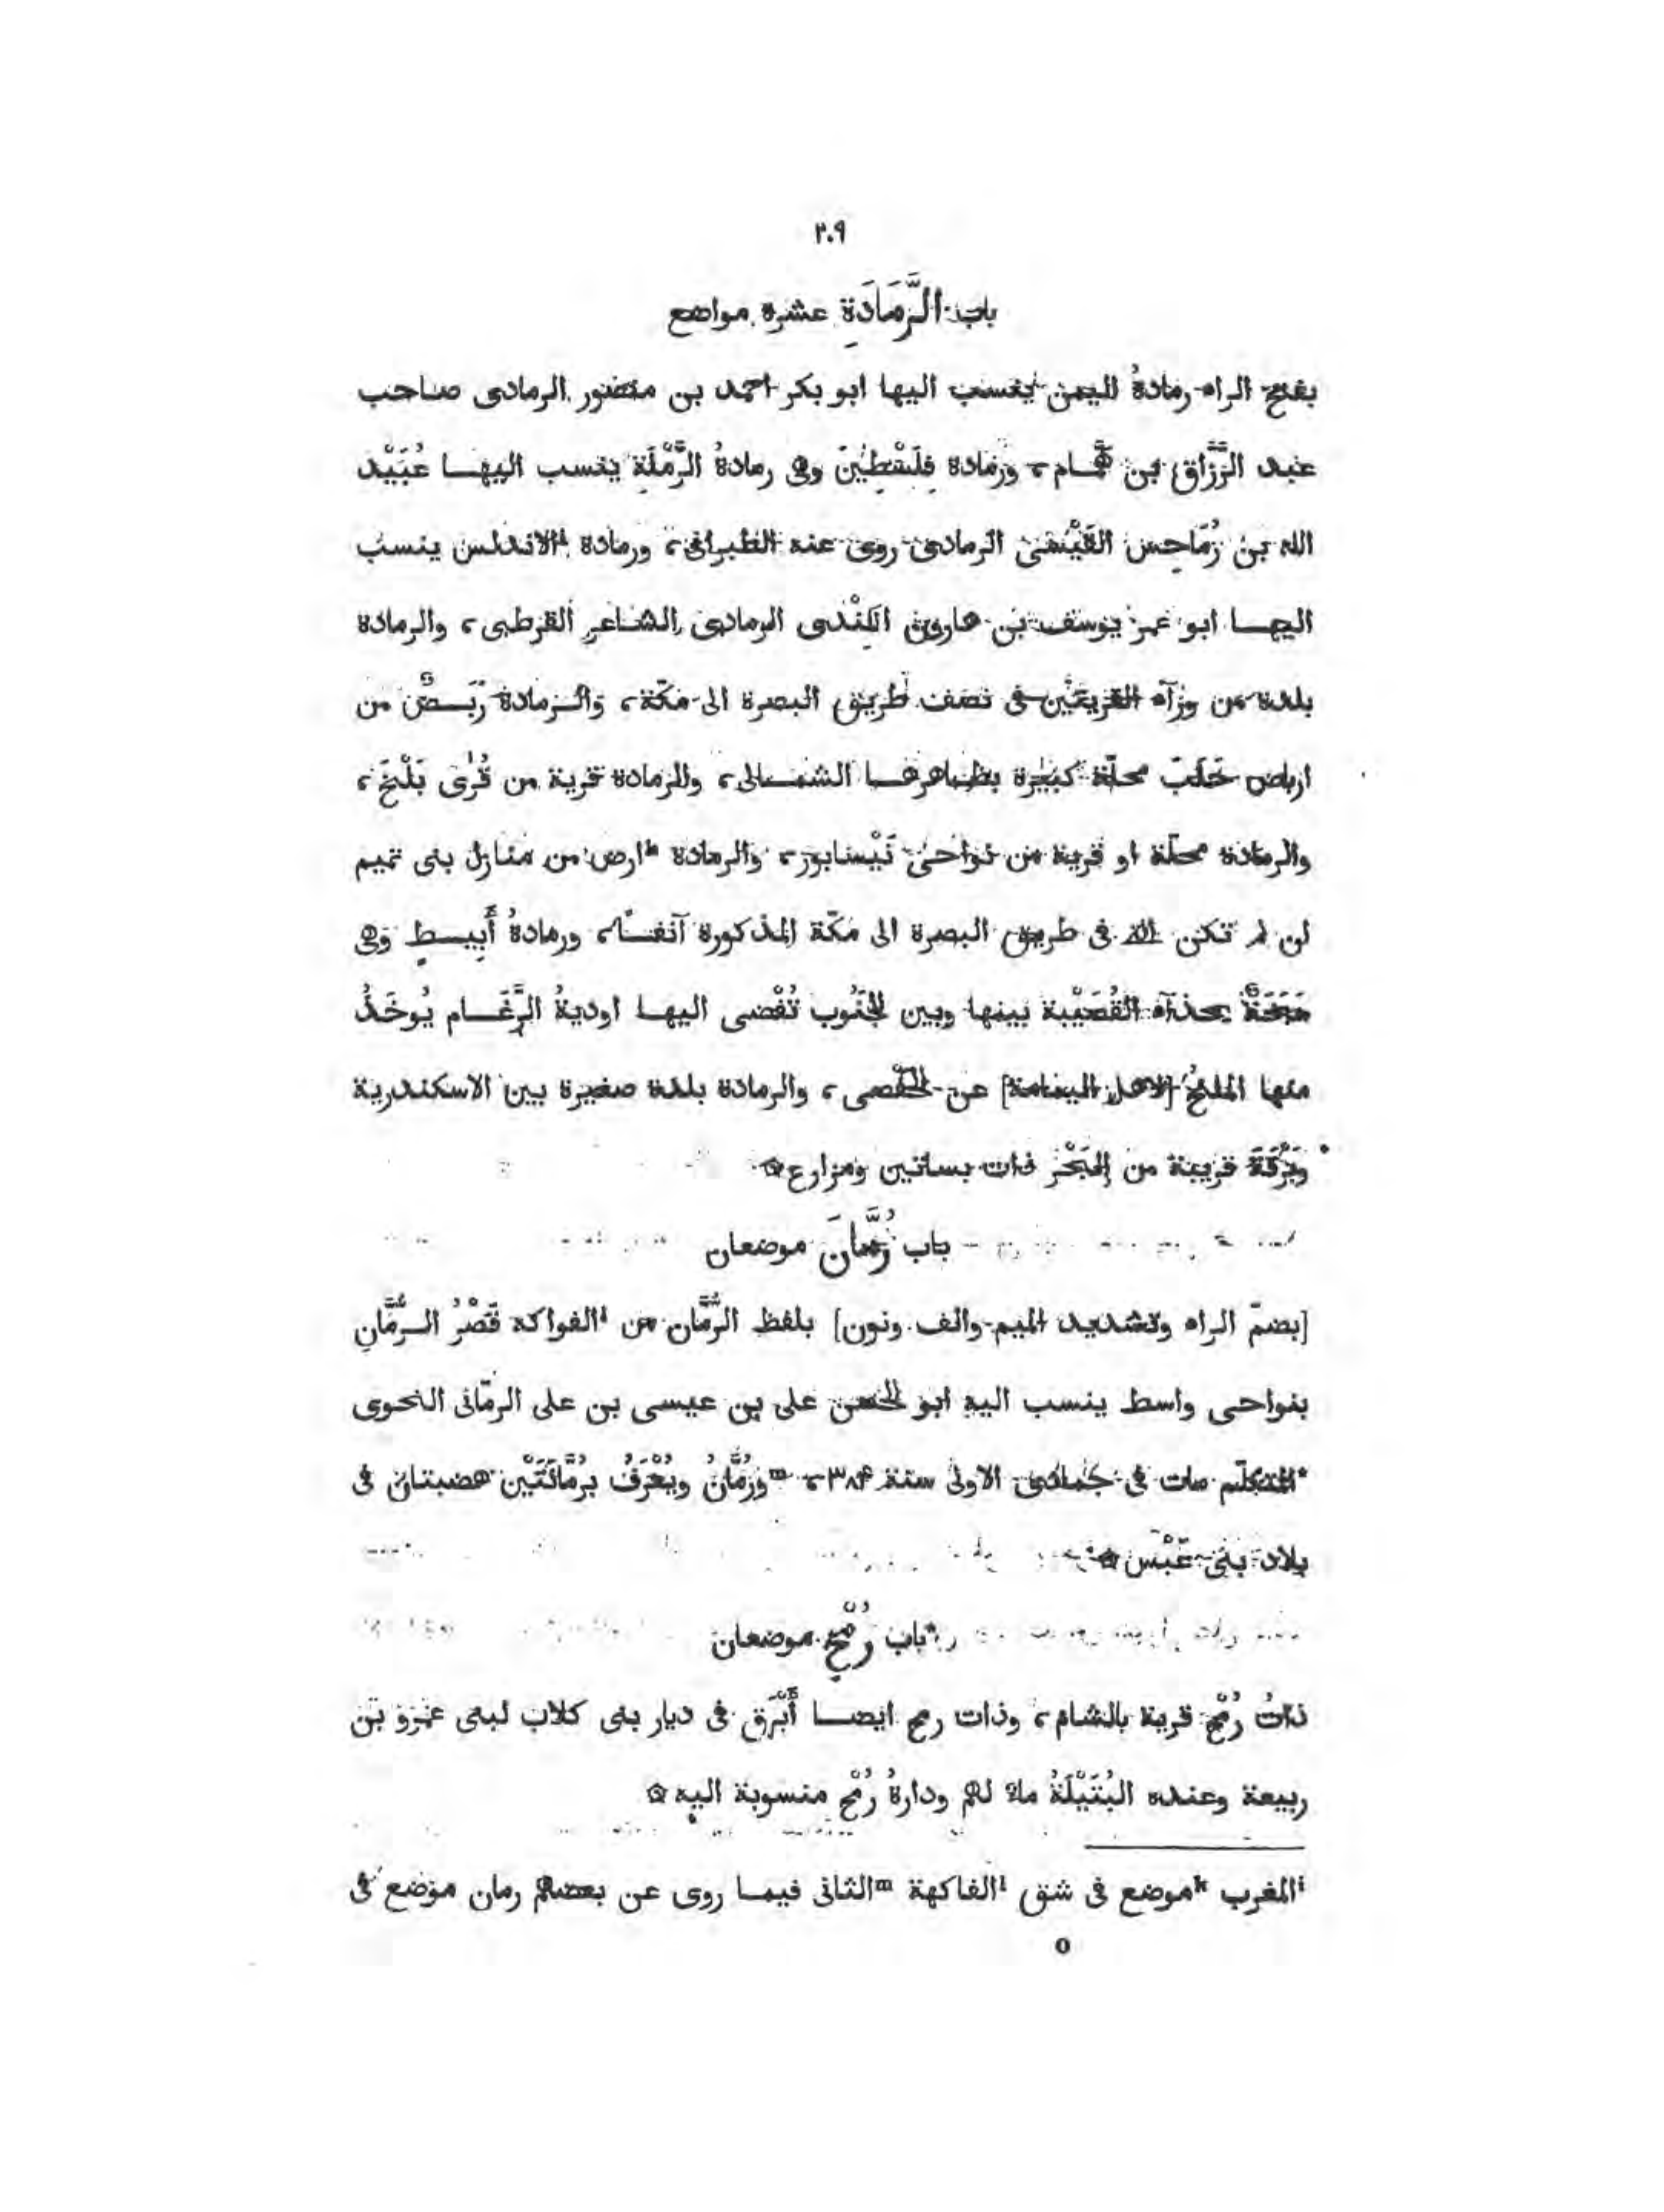 ٢٠٩
باب الرَّمَادَةِ عشرة مواضع
بفتح الراء رمادةُ اليمن ينسب اليها ابو بكر احمد بن منصور الرمادى صاحب
عبد الرَّزَّاق بن هَّمام، ورمادة فِلَسْطِين وهى رمادةُ الرَّمْلَة ينسب اليها عُبَيْد
الله بن رُمَاحِس القَيْسى الرمادى روى عنه الطبرانى، ورمادة ⁱالاندلس ينسب
اليها ابو عمر يوسف بن هارون الكِنْدى الرمادى الشاعر القرطبى، والرمادة
بلدة من ورآء القريتَيْن فى نصف طريق البصرة الى مكّة، والرمادة رَبَضٌ من
ارباض حَلَبَ محلّة كبيرة بظاهرها الشمالى، والرمادة قرية من قُرَى بَلْخَ،
والرمادة محلّة او قرية من نواحى نَيْسابور، والرمادة ᵏارض من منازل بنى تميم
ان لم تكن التى فى طريق البصرة الى مكّة المذكورة آنفًا، ورمادةُ أَبِيط وهى
سَبَخَةٌ بحذآء القُصَيْبة بينها وبين الجَنُوب تُفْضى اليها اوديةُ الرَّغَام يُوخَذُ
منها الملحُ [لاهل اليمامة] عن الحفصى، والرمادة بلدة صغيرة بين الاسكندرية
وبَرْقَةَ قريبة من البَحْر ذات بساتين ومزارع ۞
باب رُمَّانَ موضعان
[بضمّ الراء وتشديد الميم والف ونون] بلفظ الرُّمَّان من ˡالفواكه قَصْرُ الرُّمَّانِ
بنواحى واسط ينسب اليه ابو الحسن على بن عيسى بن على الرمّانى النحوى
*المتكلّم مات فى جمادى الاولى سنة ٣٨۴، ᵐورُمَّانُ ويُعْرَفُ برُمَّانَتَيْن هضبتان فى
بلاد بنى عَبْس ۞
*باب رُمْحٍ موضعان
ذاتُ رُمْح قرية بالشام، وذات رمح ايضا أَبْرَق فى ديار بنى كلاب لبنى عمرو بن
ربيعة وعنده البُتَيْلَةُ ماء لهم ودارةُ رُمْح منسوبة اليه ۞
ⁱالمغرب ᵏموضع فى شق ˡالفاكهة ᵐالثانى فيما روى عن بعضهم رمان موضع فى
o